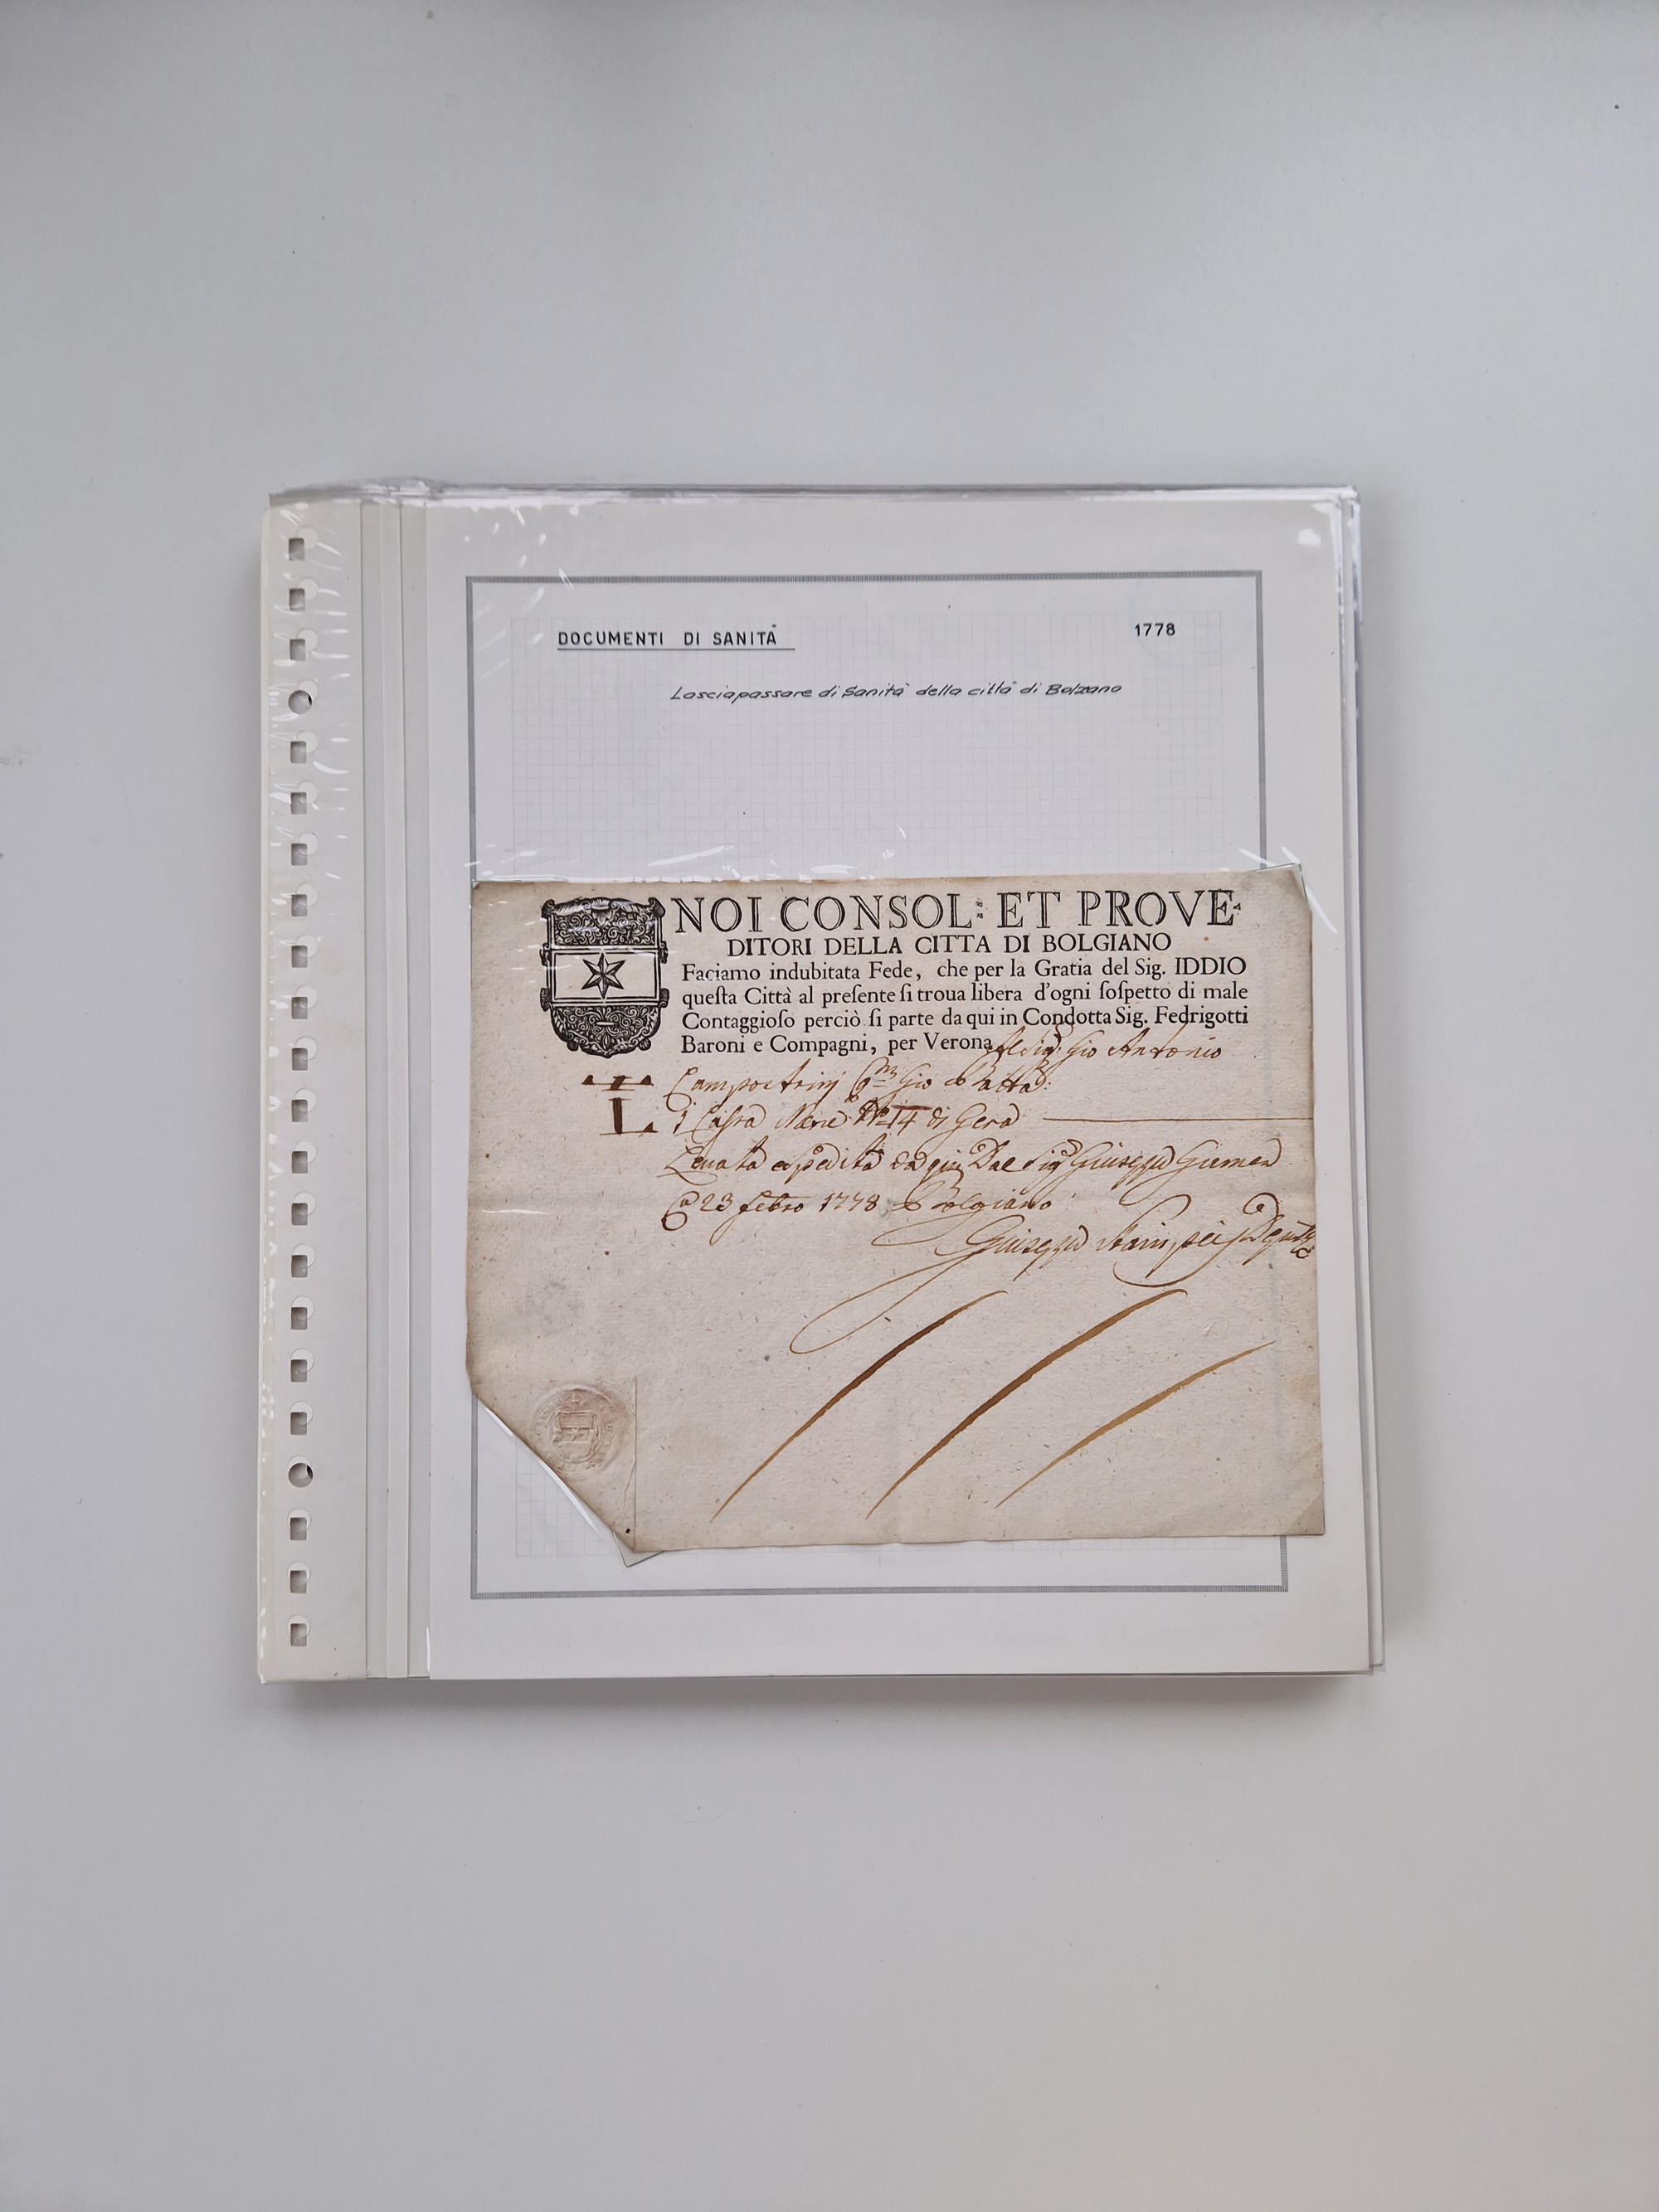 DOCUMENTI DI SANITÀ
1778
Lasciapassare di Sanità della città di Bolzano
NOI CONSOL: ET PROVE-
DITORI DELLA CITTA DI BOLGIANO
Faciamo indubitata Fede, che per la Gratia del Sig. IDDIO
queſta Città al preſente ſi troua libera d'ogni ſoſpetto di male
Contaggioſo perciò ſi parte da qui in Condotta Sig. Fedrigotti
Baroni e Compagni, per Verona Al Sig: Gio Antonio
Campostrinj Gio Batta:
L. 1 Caſsa Merce 14 di Gera
Leuata espedita da qui Dal Sig Giuseppe
23 febro 1778 Bolgiano
Giuseppe